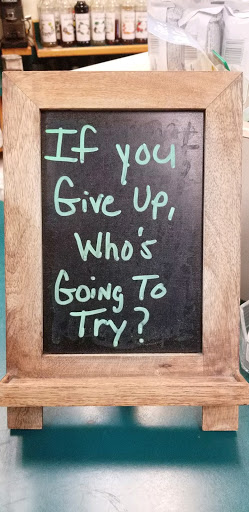 If you
Give Up,
Who's
Going To
Try?